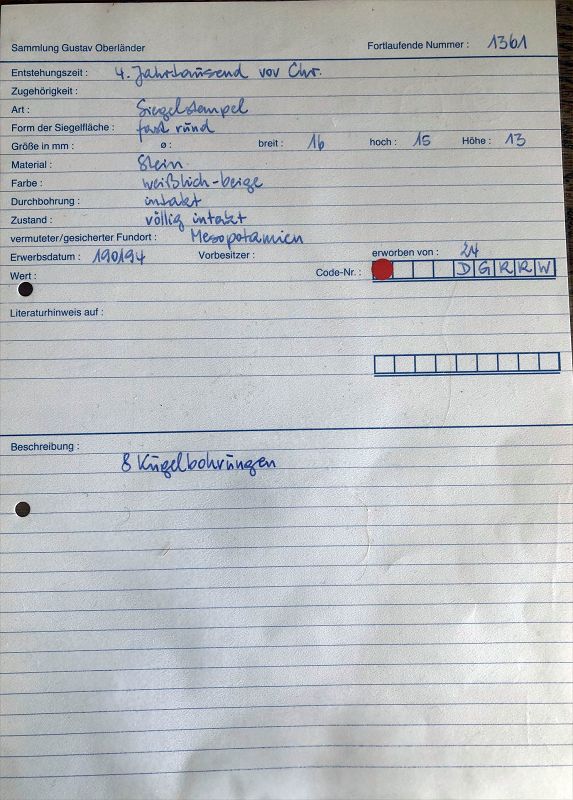 Sammlung Gustav Oberländer Fortlaufende Nummer : 1361
Entstehungszeit : 4. Jahrtausend vor Chr.
Zugehörigkeit :
Art : Siegelstempel
Form der Siegelfläche : fast rund
Größe in mm : ø : breit : 16 hoch : 15 Höhe : 13
Material : Stein
Farbe : weißlich-beige
Durchbohrung : intakt
Zustand : völlig intakt
vermuteter/gesicherter Fundort : Mesopotamien
Erwerbsdatum : 190194 Vorbesitzer : erworben von : 24
Wert : Code-Nr. : D G R R W
Literaturhinweis auf :
Beschreibung :
8 Kugelbohrungen